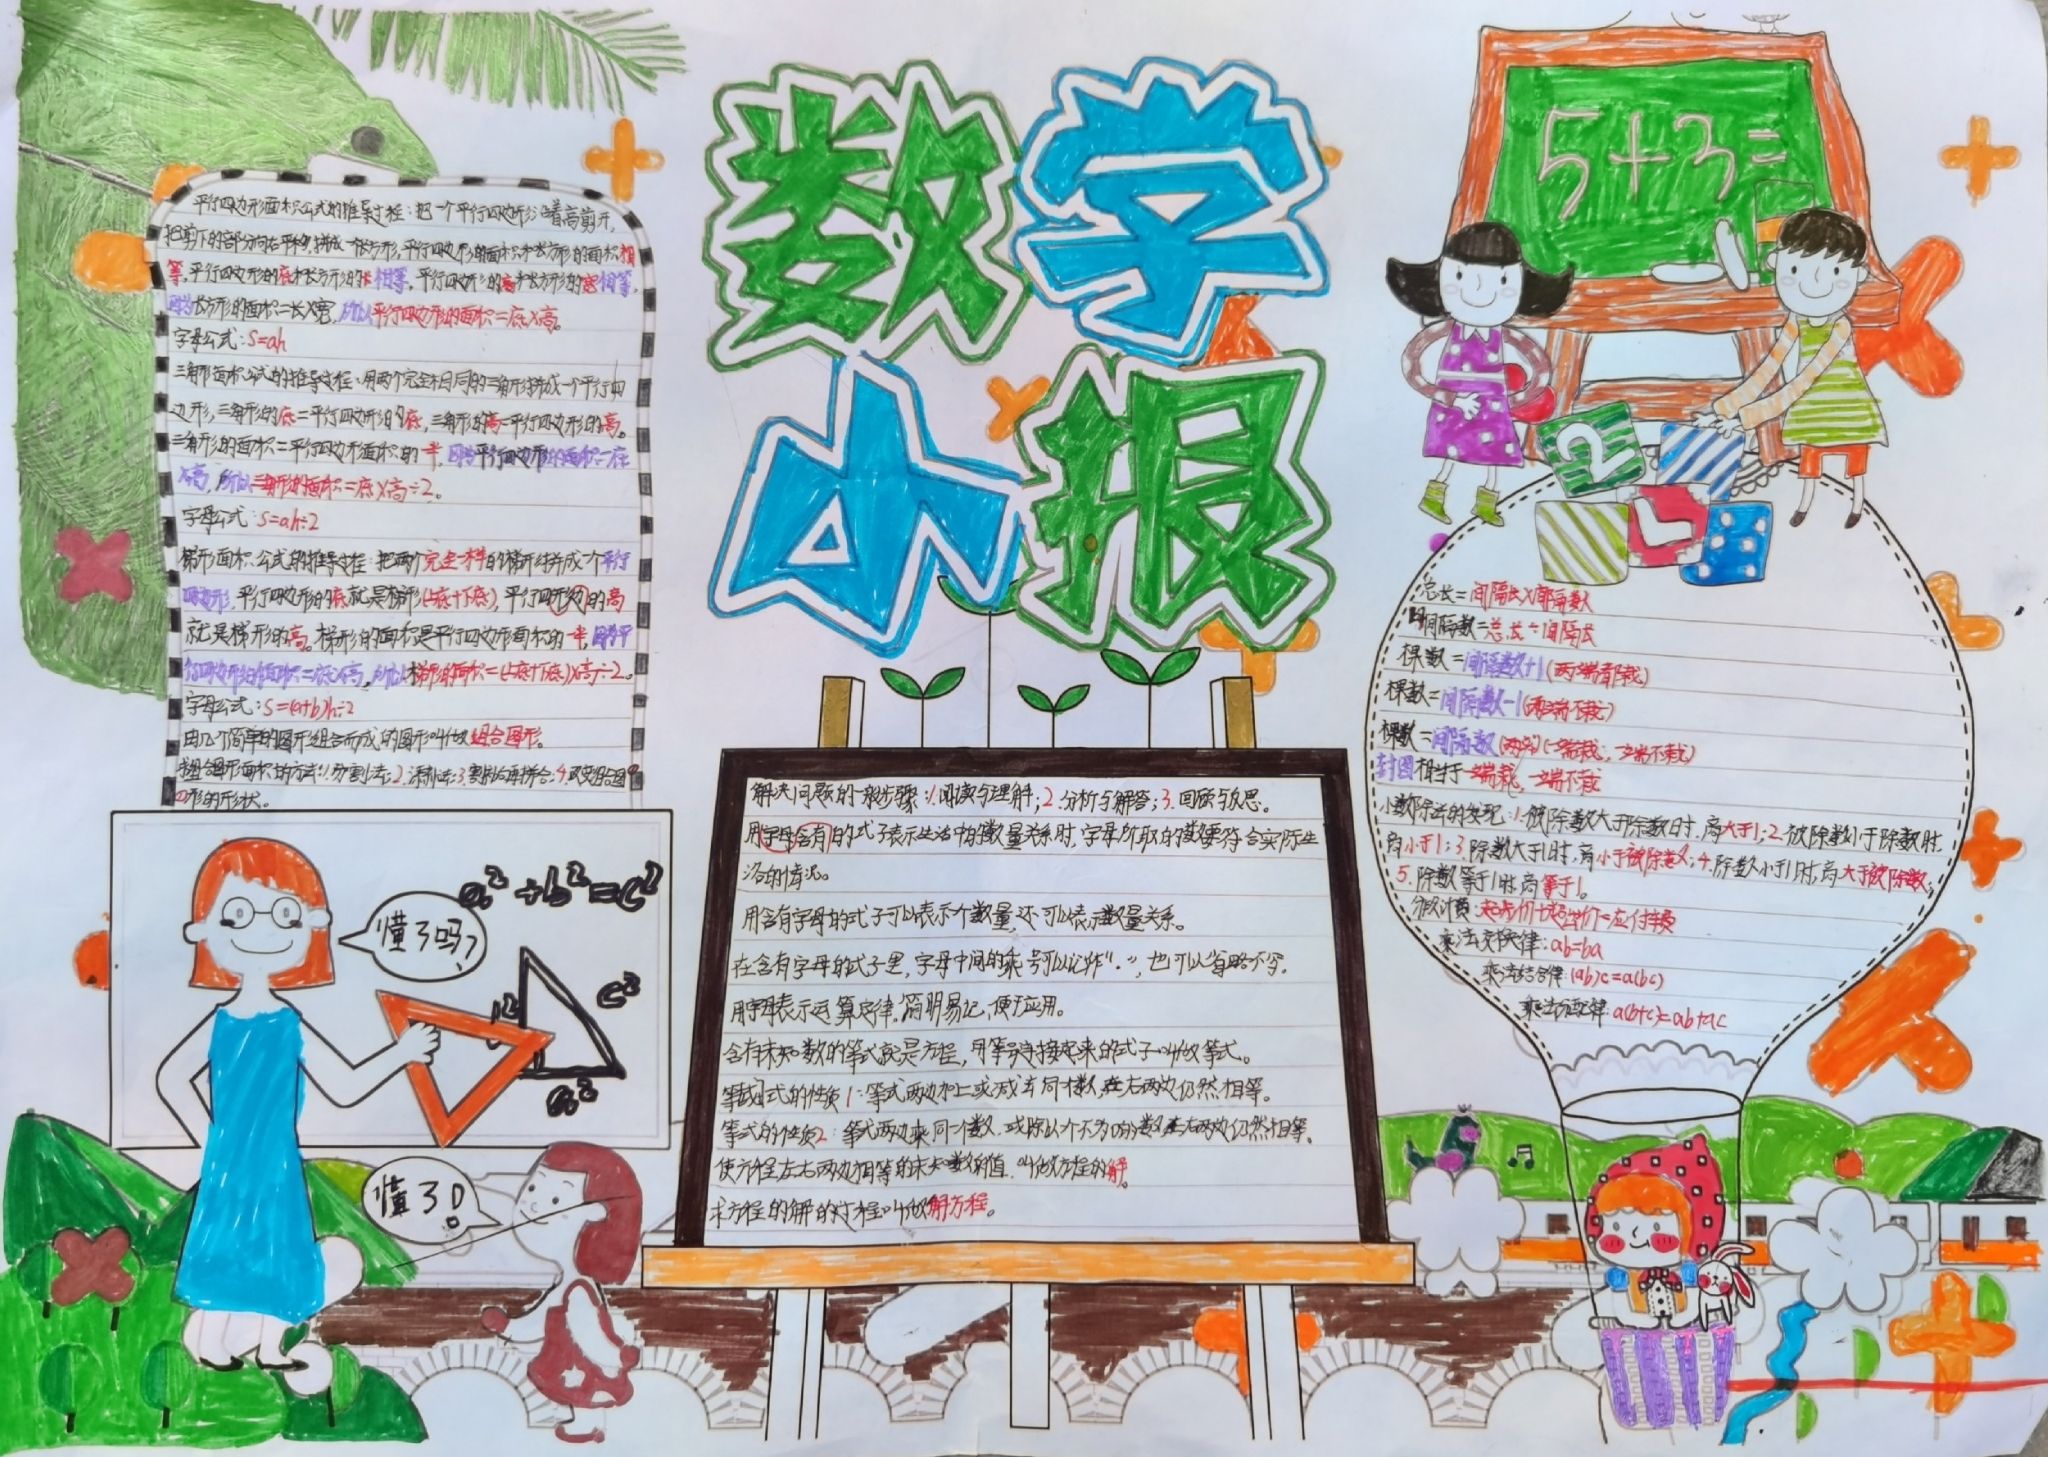 数字
小报
平行四边形面积公式的推导过程:把一个平行四边形沿着高剪开,
把剪下的部分向右平移,拼成一长方形,平行四边形的面积和长方形的面积相
等,平行四边形的底和长方形的长相等,平行四边形的高和长方形的宽相等,
因为长方形的面积=长×宽,所以平行四边形的面积=底×高。
字母公式:S=ah
三角形面积公式的推导过程:用两个完全相同的三角形拼成一个平行四
边形,三角形的底=平行四边形的底,三角形的高=平行四边形的高。
三角形的面积=平行四边形面积的一半,因为平行四边形的面积=底
×高,所以三角形的面积=底×高÷2。
字母公式:S=ah÷2
梯形面积公式的推导过程:把两个完全一样的梯形拼成一个平行
四边形,平行四边形的底就是梯形(上底+下底),平行四形边的高
就是梯形的高。梯形的面积是平行四边形面积的一半,因为平
行四边形的面积=底×高,所以梯形的面积=(上底+下底)×高÷2。
字母公式:S=(a+b)h÷2
由几个简单的图形组合而成的图形叫做组合图形。
求组合图形面积的方法:1.分割法;2.添补法;3.割补后再拼合;4.改变组合图
形的形状。
a²+b²=c²
懂了吗?
b²
c²
a²
懂了!
解决问题的一般步骤:1.阅读与理解;2.分析与解答;3.回顾与反思。
用字母含有的式子表示生活中的数量关系时,字母所取的数要符合实际生
活的情况。
用含有字母的式子可以表示个数量,还可以表示数量关系。
在含有字母的式子里,字母中间的乘号可以记作“·”,也可以省略不写。
用字母表示运算定律,简明易记,便于应用。
含有未知数的等式就是方程,用等号连接起来的式子叫做等式。
等式的性质1:等式两边加上或减去同一个数,左右两边仍然相等。
等式的性质2:等式两边乘同一个数,或除以一个不为0的数,左右两边仍然相等。
使方程左右两边相等的未知数的值,叫做方程的解。
求方程的解的过程叫做解方程。
5+3=
2
总长=间隔长×间隔数
间隔数=总长÷间隔长
棵数=间隔数+1(两端都栽)
棵数=间隔数-1(两端不栽)
棵数=间隔数(一端栽,一端不栽)
封图相当于一端栽,一端不栽
小数除法的发现:1.被除数大于除数时,商大于1;2.被除数小于除数时,
商小于1;3.除数大于1时,商小于被除数;4.除数小于1时,商大于被除数;
5.除数等于1时,商等于1。
分段计费:起步价+超出价=应付车费
乘法交换律:ab=ba
乘法结合律:(ab)c=a(bc)
乘法分配律:a(b+c)=ab+ac